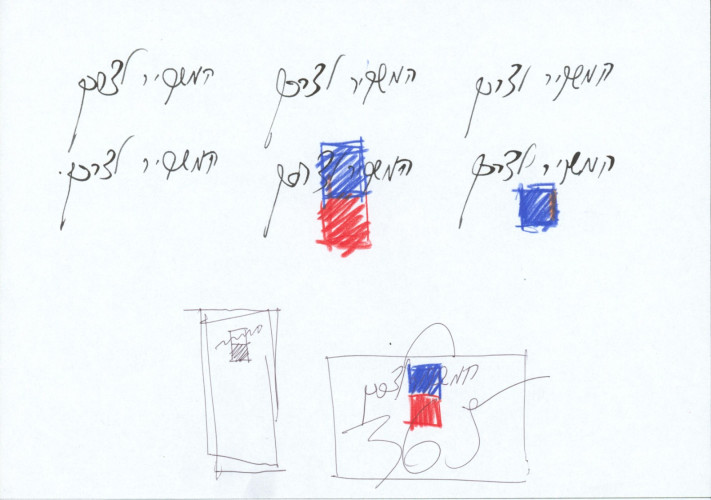 המשביר לצרכן המשביר לצרכן המשביר לצרכן
המשביר לצרכן המשביר לצרכן המשביר לצרכן
המשביר לצרכן
365